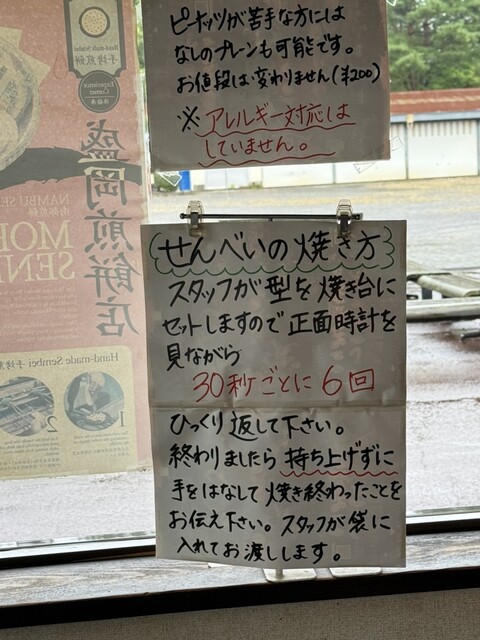 ピーナッツが苦手な方には
なしのプレーンも可能です。
お値段は変わりません(¥200)
※アレルギー対応は
していません。
せんべいの焼き方
スタッフが型を焼き台に
セットしますので正面時計を
見ながら
30秒ごとに6回
ひっくり返して下さい。
終わりましたら持ち上げずに
手をはなして焼き終わったことを
お伝え下さい。スタッフが袋に
入れてお渡しします。
手焼煎餅
Experience
Corner
盛岡煎餅店
NAMBU SE
南部煎餅
MO
SEN
Hand-made Sembei 手焼煎餅
1
2